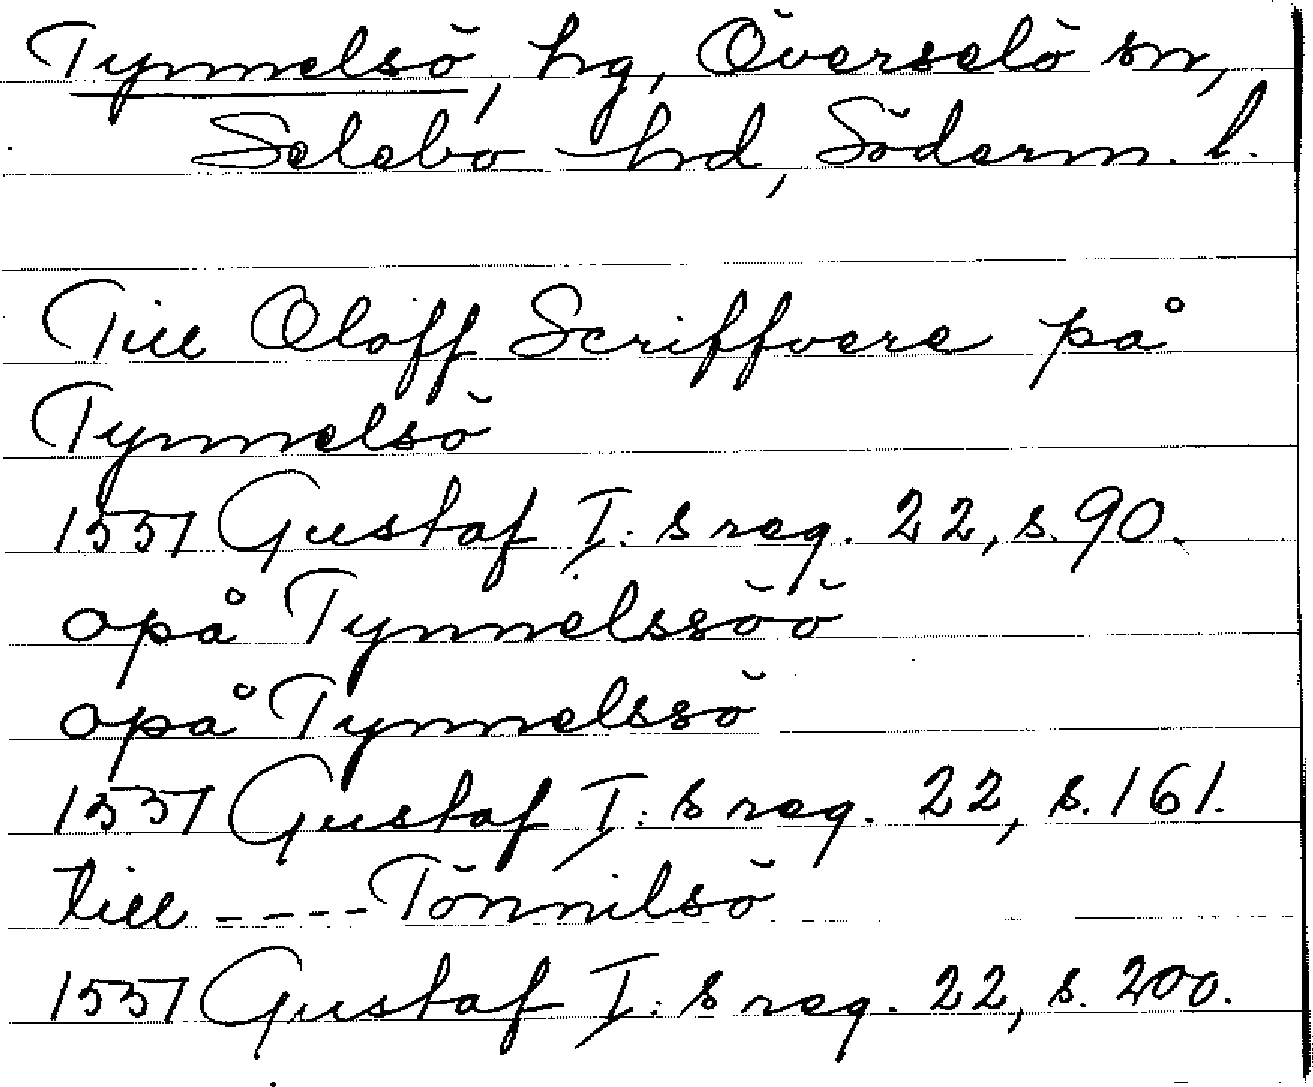 Tynnelsö, hg, Överselö sn,
Selebo hd, Söderm. l.
Till Oloff Scriffvere på
Tynnelsö
1551 Gustaf I:s reg. 22, s. 90.
opå Tynnelssöö
opå Tynnelssö
1551 Gustaf I:s reg. 22, s. 161.
till ---- Tönnilsö
1551 Gustaf I:s reg. 22, s. 200.